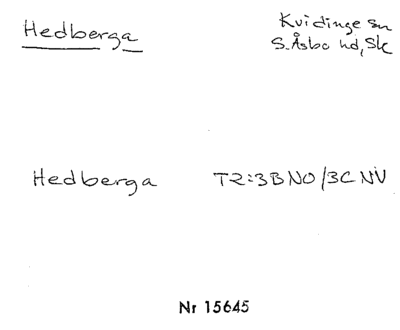 Hedberga
Kvidinge sn
S. Åsbo hd, Sk
Hedberga T2:3B NO/3C NV
Nr 15645